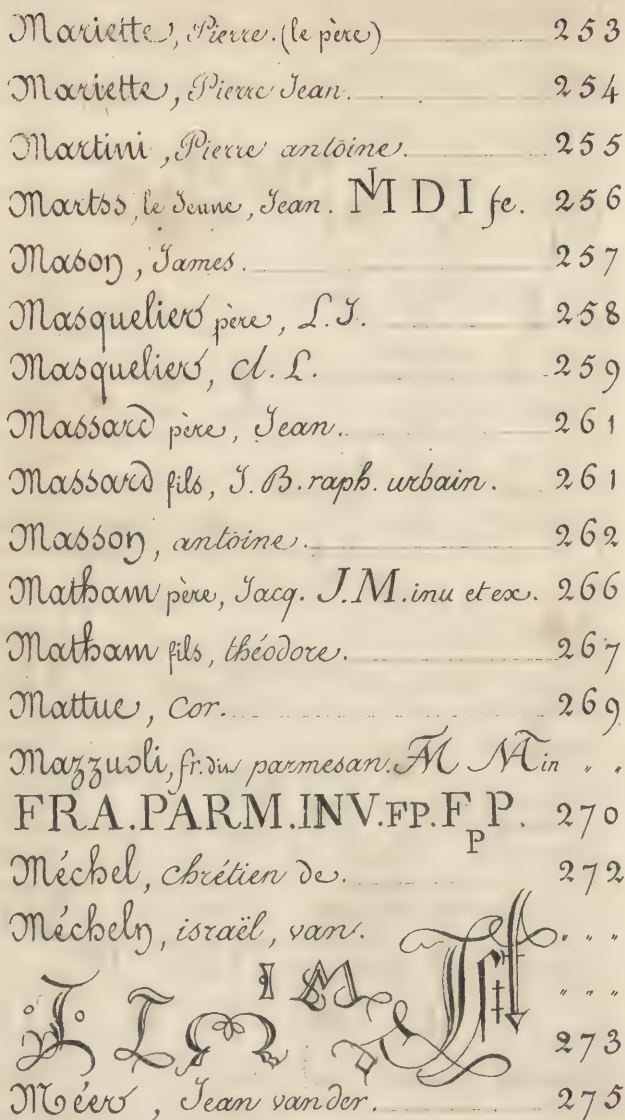 Mariette, Pierre. (le père) 253
Mariette, Pierre Jean. 254
Martini, Pierre antoine. 255
Martss le Jeune, Jean. M D I fe. 256
Mason, James. 257
Masquelier père, L. J. 258
Masquelier, cl. L. 259
Massard père, Jean. 261
Massard fils, J. B. raph. urbain. 261
Masson, antoine. 262
Matham père, Jacq. J.M. inu et ex. 266
Matham fils, théodore. 267
Mattue, Cor. 269
Mazzuoli, fr. du parmesan. FM in " "
FRA.PARM.INV.FP.F P P. 270
Méchel, chrétien de. 272
Mécheln, israël, van. " " "
I M " " "
273
Méer, Jean vander. 275